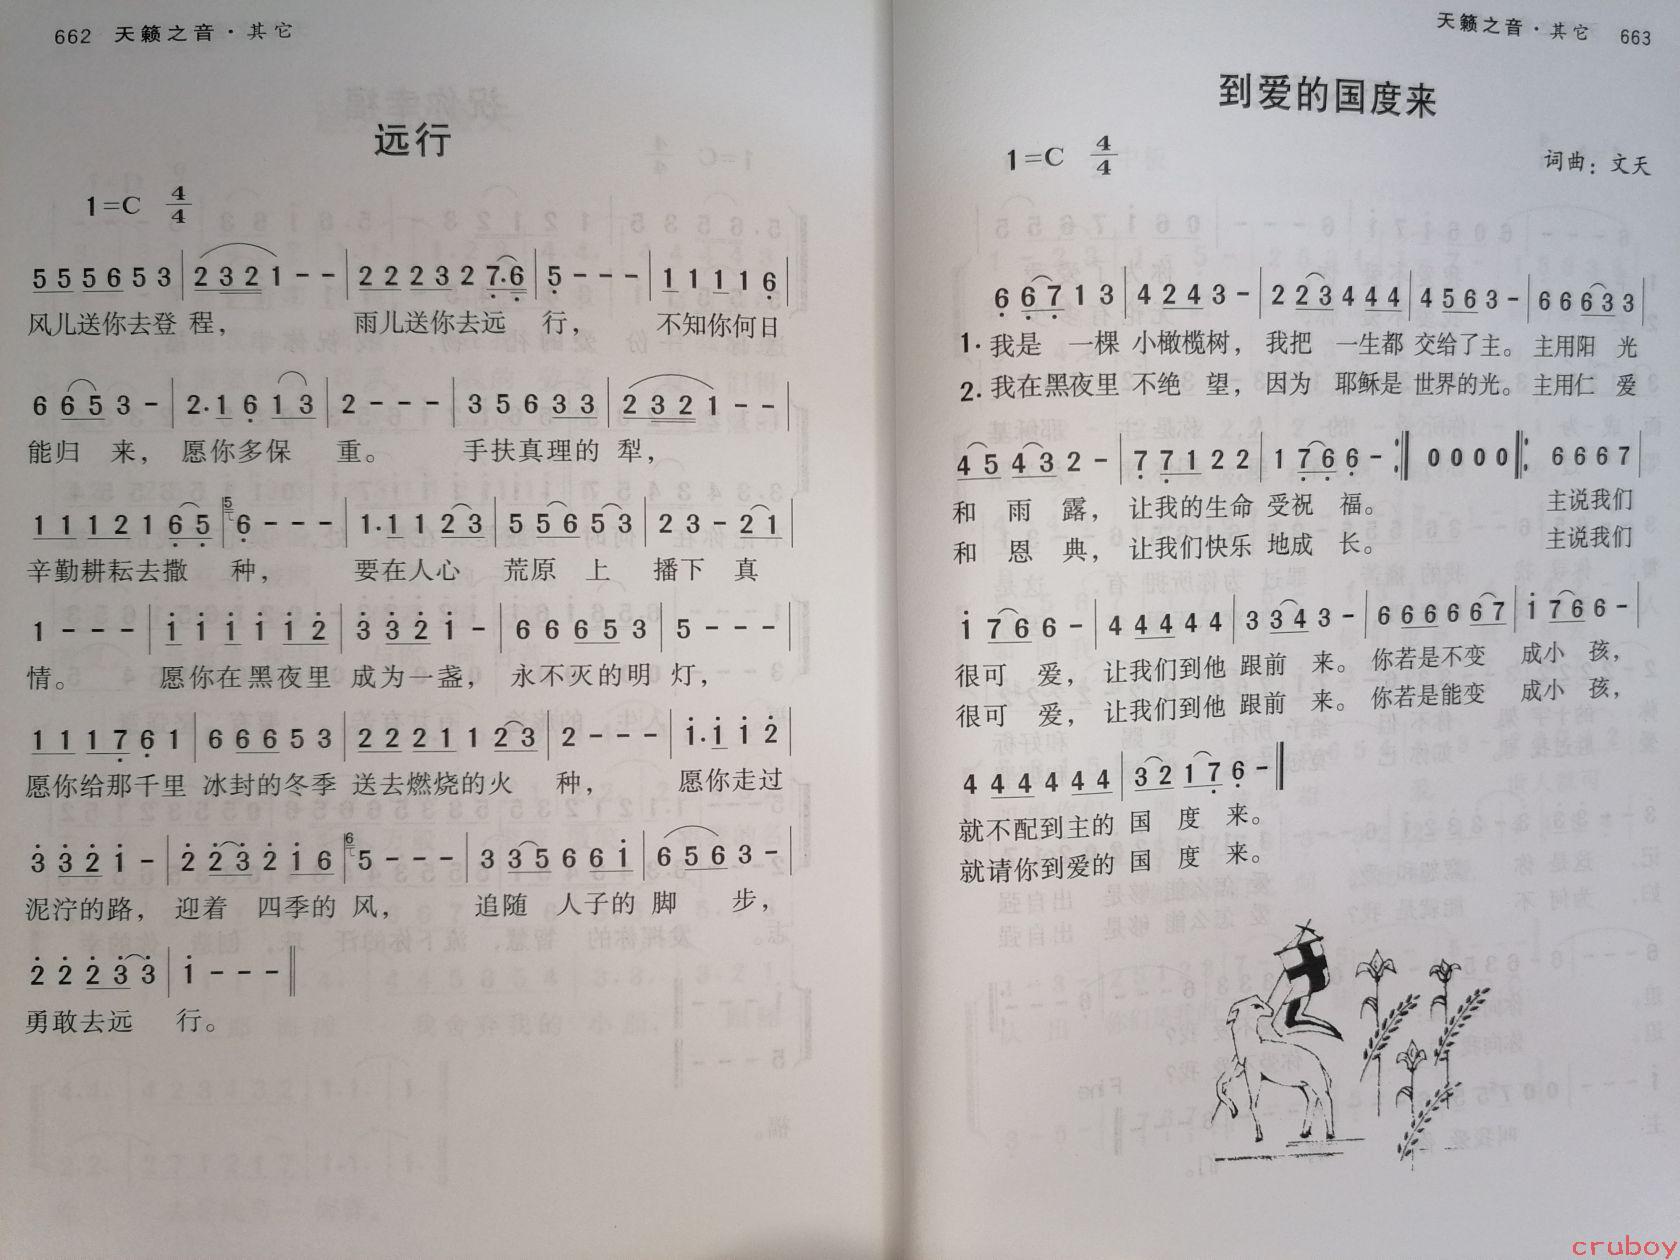 662 天籁之音·其它
远行
1=C 4/4
5 5 5 6 5 3 | 2 3 2 1 - - | 2 2 2 3 2 7·6 | 5 - - - | 1 1 1 1 6 |
风儿送你去登 程， 雨儿送你去远 行， 不知你何日
6 6 5 3 - | 2·1 6 1 3 | 2 - - - | 3 5 6 3 3 | 2 3 2 1 - - |
能归 来， 愿你多保 重。 手扶真理的 犁，
1 1 1 2 1 6 5 | 5 6 - - - | 1·1 1 2 3 | 5 5 6 5 3 | 2 3 - 2 1 |
辛勤耕耘去撒 种， 要在人心 荒原 上 播下 真
1 - - - | 1 1 1 1 1 2 | 3 3 2 1 - | 6 6 6 5 3 | 5 - - - |
情。 愿你在黑夜里 成为一盏， 永不灭的明 灯，
1 1 1 7 6 1 | 6 6 6 5 3 | 2 2 2 1 1 2 3 | 2 - - - | 1·1 1 2 |
愿你给那千里 冰封的冬季 送去燃烧的火 种， 愿你走过
3 3 2 1 - | 2 2 3 2 1 6 | 6 5 - - - | 3 3 5 6 6 1 | 6 5 6 3 - |
泥泞的路， 迎着 四季的 风， 追随 人子的 脚 步，
2 2 2 3 3 | 1 - - - ‖
勇敢去远 行。
天籁之音·其它 663
到爱的国度来
1=C 4/4
词曲：文天
6 6 7 1 3 | 4 2 4 3 - | 2 2 3 4 4 4 | 4 5 6 3 - | 6 6 6 3 3 |
1·我是 一棵 小橄榄树， 我把 一生都 交给了主。 主用阳 光
2.我在黑夜里 不绝 望， 因为 耶稣是 世界的光。 主用仁 爱
4 5 4 3 2 - | 7 7 1 2 2 | 1 7 6 6 - :‖ 0 0 0 0 ‖: 6 6 6 7 |
和 雨 露， 让我的生命 受祝 福。 主说我们
和 恩 典， 让我们快乐 地成 长。 主说我们
1 7 6 6 - | 4 4 4 4 4 | 3 3 4 3 - | 6 6 6 6 6 7 | 1 7 6 6 - |
很可 爱， 让我们到他 跟前 来。 你若是不变 成小 孩，
很可 爱， 让我们到他 跟前 来。 你若是能变 成小 孩，
4 4 4 4 4 4 | 3 2 1 7 6 - ‖
就不配到主的 国 度 来。
就请你到爱的 国 度 来。
cruboy